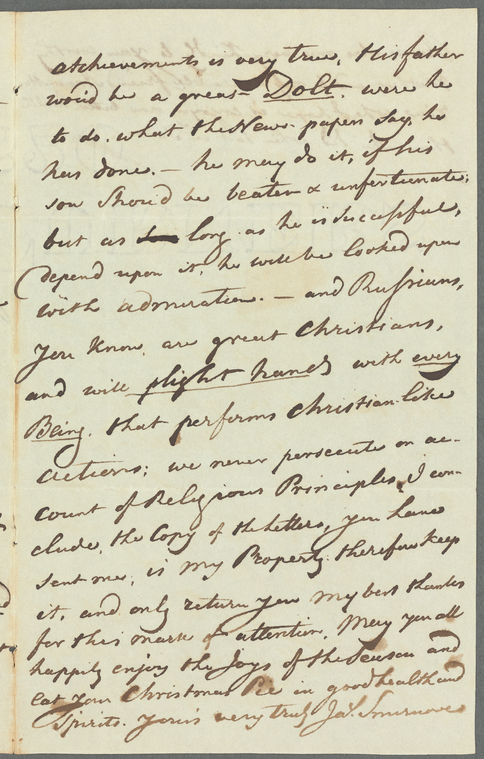 atchievements is very true, His father
wou'd be a great Dolt. were he
to do. what the News-papers say, he
has done. — he may do it, if his
son shou'd be beaten & unfortunate;
but as long as he is successful,
depend upon it, he will be looked upon
with admiration. — and Russians,
you know, are great Christians,
and will plight hands with every
Being, that performs Christian-like
actions; we never persecute on ac-
count of Religious Principles, I con-
clude, the Copy of the Letters, you have
sent me, is my Property. therefore keep
it, and only return you my best thanks
for this mark of attention. May you all
happily enjoy the Joys of the Season and
eat your Christmas Pie in good health and
Spirits. Your's very truly Ja.s Smirnove